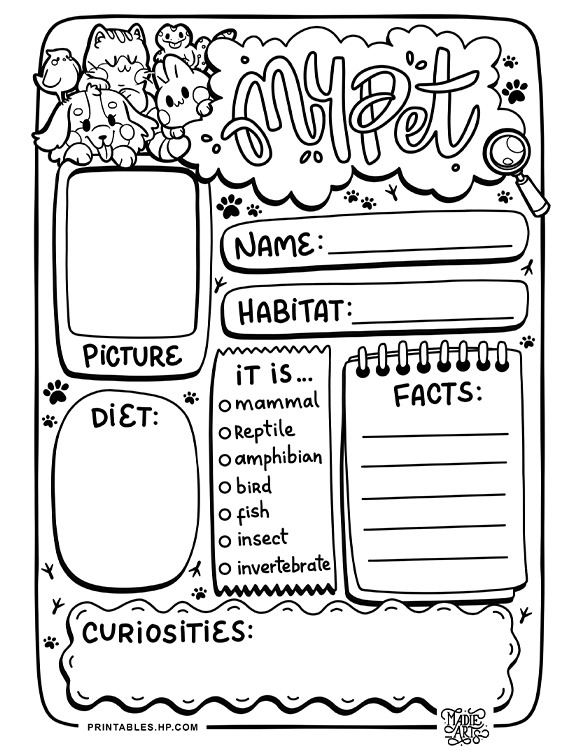 My Pet
NAME:
HABiTAT:
PiCTURE
iT iS...
mammal
Reptile
amphibian
biRd
fish
insect
invertebrate
FACTS:
DiET:
CURiOSiTiES:
PRINTABLES.HP.COM
MADIE
ARTS